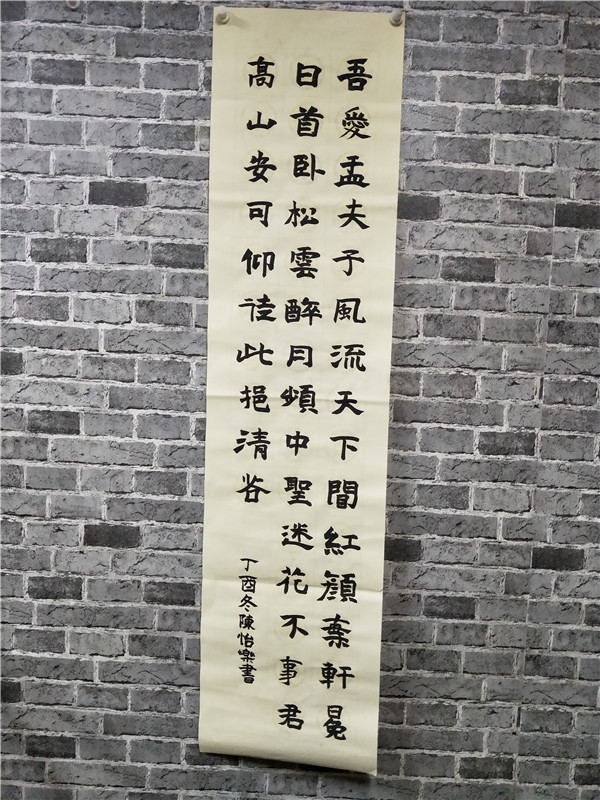 吾愛孟夫子風流天下聞紅顏棄軒冕
白首卧松雲醉月頻中聖迷花不事君
髙山安可仰徒此挹清芬
丁酉冬陳怡樂書